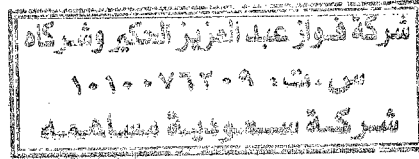 شركة فواز عبد العزيز الحكير وشركاه
س.ت. ١٠١٠٠٧٦٢٠٩
شركة سعودية مساهمة